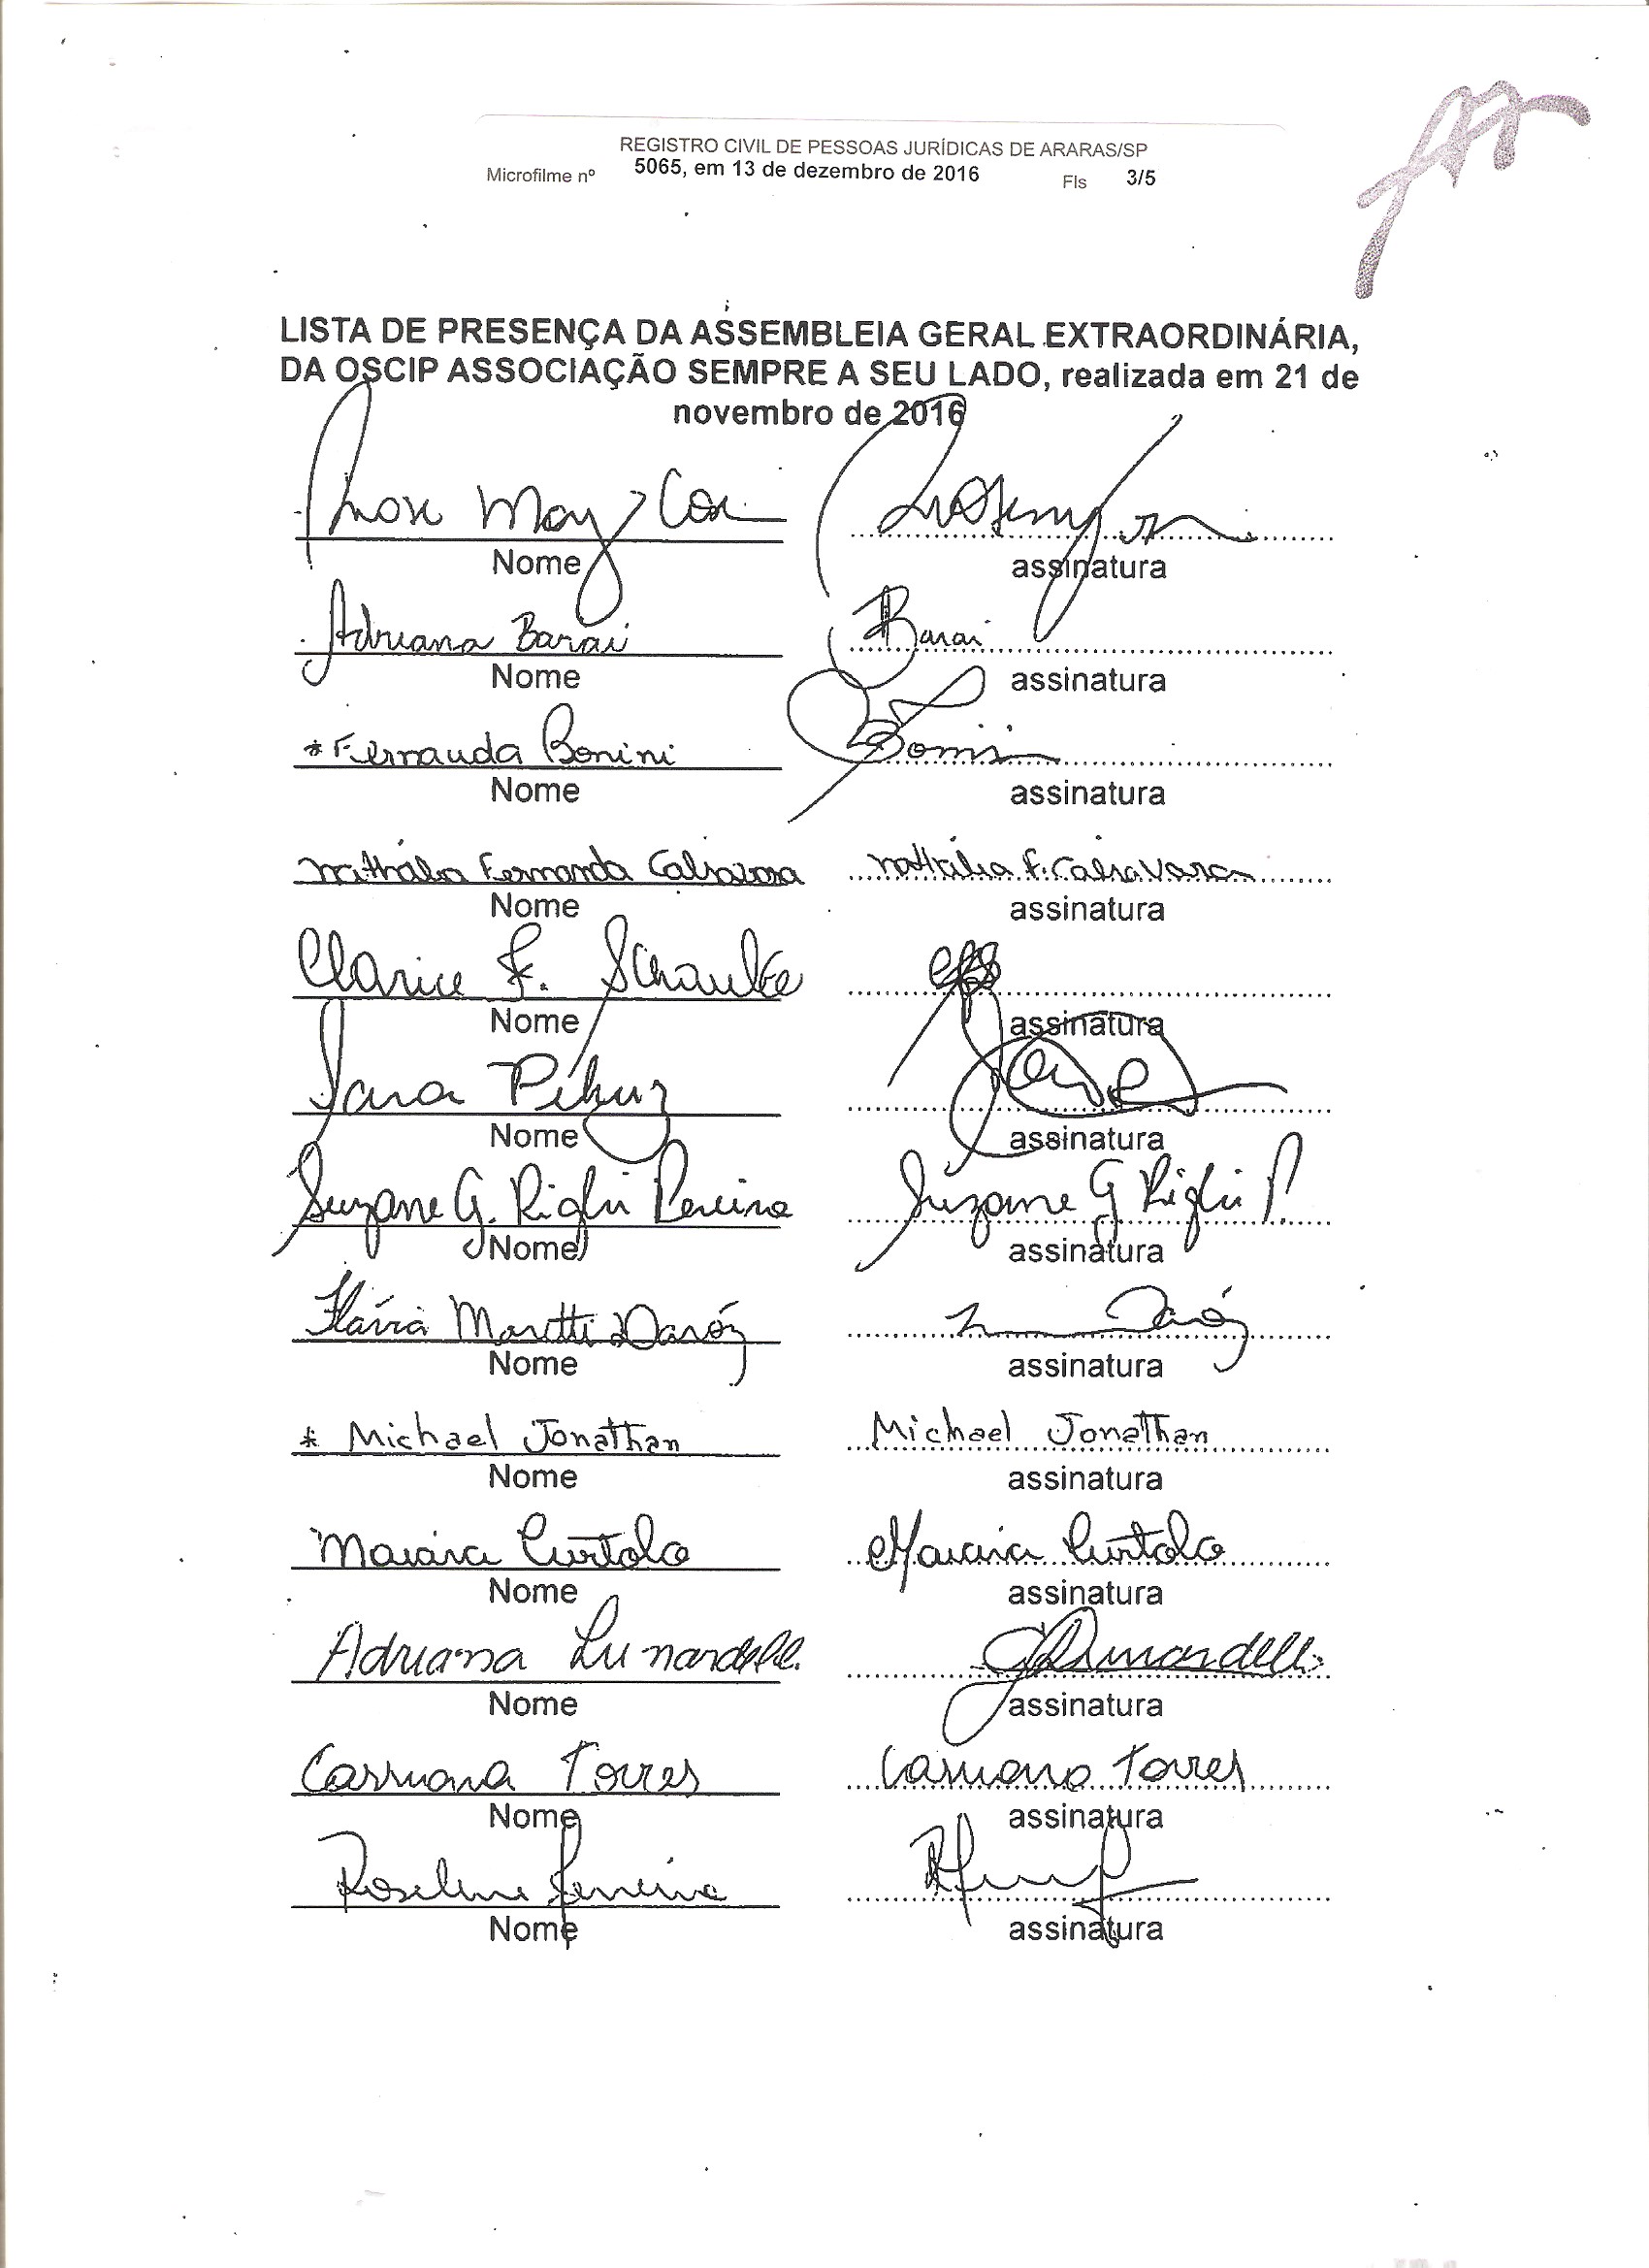 REGISTRO CIVIL DE PESSOAS JURÍDICAS DE ARARAS/SP
Microfilme nº 5065, em 13 de dezembro de 2016 Fls 3/5
LISTA DE PRESENÇA DA ASSEMBLEIA GERAL EXTRAORDINÁRIA,
DA OSCIP ASSOCIAÇÃO SEMPRE A SEU LADO, realizada em 21 de
novembro de 2016
Nome assinatura
Adriana Barai Barai
Nome assinatura
*Fernanda Bonini Bonini
Nome assinatura
Nathália Fernanda Calsavara Nathália F. Calsavara
Nome assinatura
Clarice F.
Nome assinatura
Sara
Nome assinatura
Suzane G. Righi Pereira Suzane G Righi P.
Nome assinatura
Flávia Maretti Daróz Daróz
Nome assinatura
* Michael Jonathan Michael Jonathan
Nome assinatura
Maiara Curtolo Maiara Curtolo
Nome assinatura
Adriana Lunardelli Lunardelli
Nome assinatura
Torres Torres
Nome assinatura
Roselene Ferreira
Nome assinatura